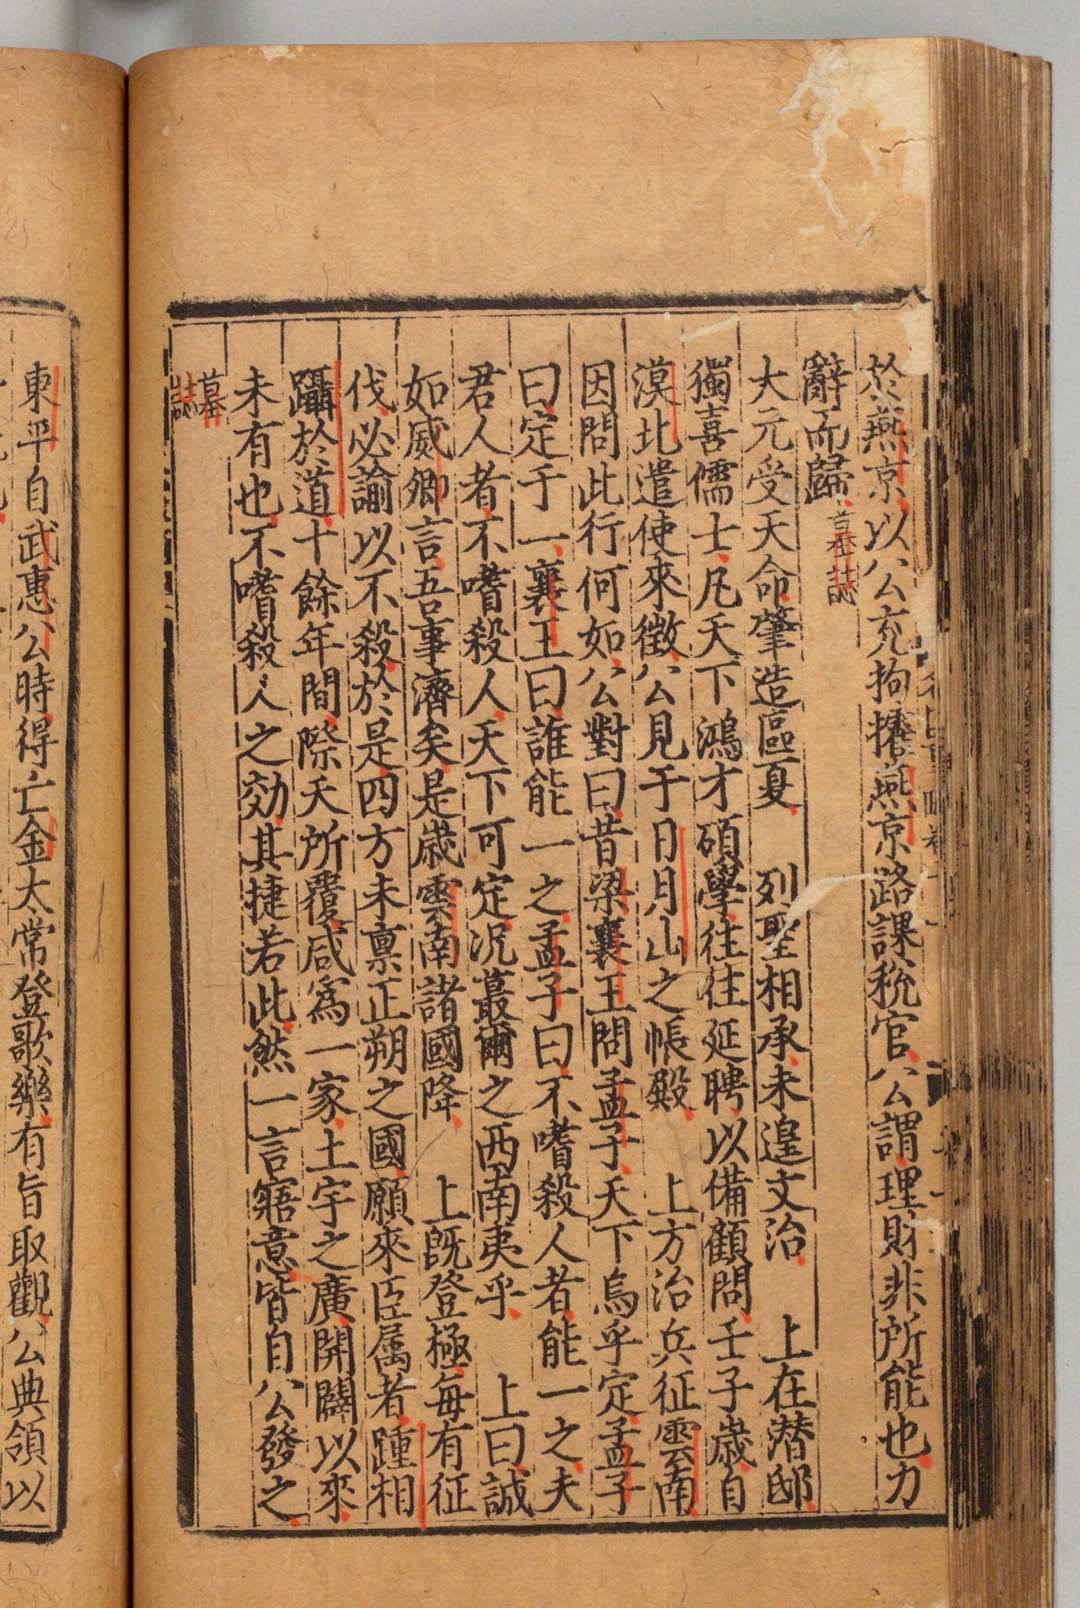 於燕京以公充拘攉燕京路課稅官公謂理財非所能也力
辭而歸墓誌
大元受天命肇造區夏　列聖相承未遑文治　上在潜邸
獨喜儒士凡天下鴻才碩學往往延聘以備顧問壬子歲自
漠北遣使來徵公見于日月山之帳殿　上方治兵征雲南
因問此行何如公對曰昔梁襄王問孟子天下烏乎定孟子
曰定于一襄王曰誰能一之孟子曰不嗜殺人者能一之夫
君人者不嗜殺人天下可定况蕞爾之西南夷乎　上曰誠
如威卿言吾事濟矣是歲雲南諸國降　上旣登極每有征
伐必諭以不殺於是四方未禀正朔之國願來臣属者踵相
躡於道十餘年間際天所覆咸爲一家土宇之廣開闢以來
未有也不嗜殺人之効其捷若此然一言寤意皆自公發之
墓誌
東平自武惠公時得亡金太常登歌樂有旨取觀公典領以